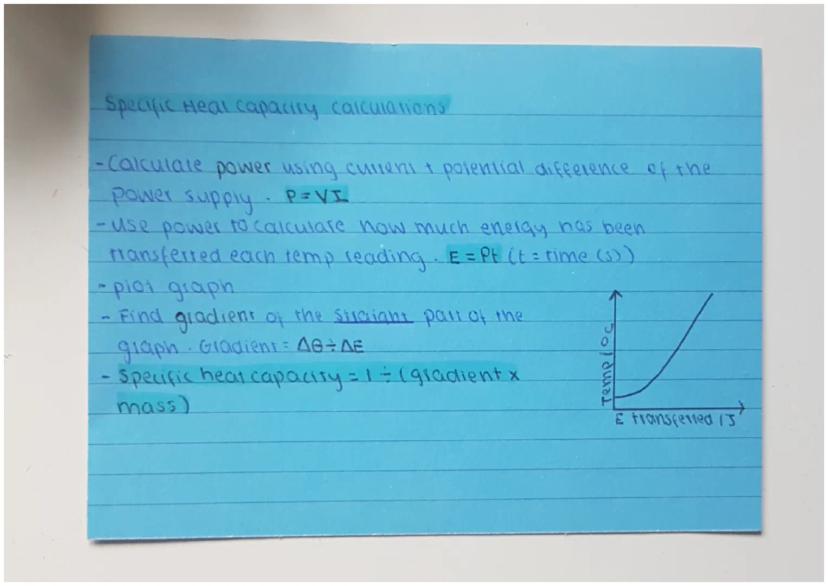 Specific Heat capacity calculations
- Calculate power using current + potential difference of the
power supply. P=VI
- Use power to calculate how much energy has been
transferred each temp reading. E = Pt (t = time (s))
- plot graph
- Find gradient of the straight part of the
graph. Gradient = Δθ÷ΔE
- Specific heat capacity = 1 ÷ (gradient x
mass)
Temp / oc
E transferred / J